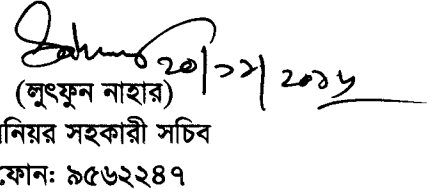 ২০/১২/২০১৮
(লুৎফুন নাহার)
নিয়র সহকারী সচিব
ফোন: ৯৫৬২২৪৭